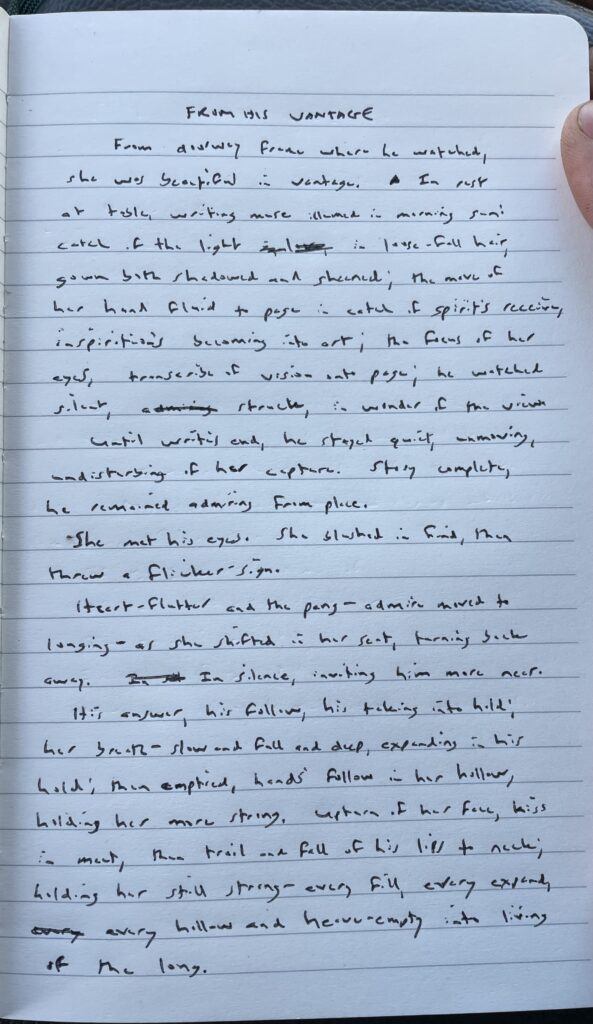 FROM HIS VANTAGE
From doorway frame where he watched,
she was beautiful in vantage. In rest
at table, writing more illumed in morning sun;
catch of the light in loose-fall hair,
gown both shadowed and sheened; the move of
her hand fluid to page in catch of spirit's receive,
inspiration's becoming into art; the focus of her
eyes, transcribe of vision onto page; he watched
silent, admiring struck, in wonder of the view.
Until writing's end, he stayed quiet, unmoving,
undisturbing of her capture. Story complete,
he remained admiring from place.
She met his eyes. She blushed in find, then
threw a flicker-sign.
Heart-flutter and the pang - admire moved to
longing - as she shifted in her seat, turning back
away. In silence, inviting him more near.
His answer, his follow, his taking into hold;
her breath - slow and full and deep, expanding in his
hold; then emptied, hands' follow in her hollow,
holding her more strong. Capture of her face, kiss
in meet, then trail and fall of his lips to neck;
holding her still strong - every fill, every expand,
every every hollow and heave-empty into living
of the long.